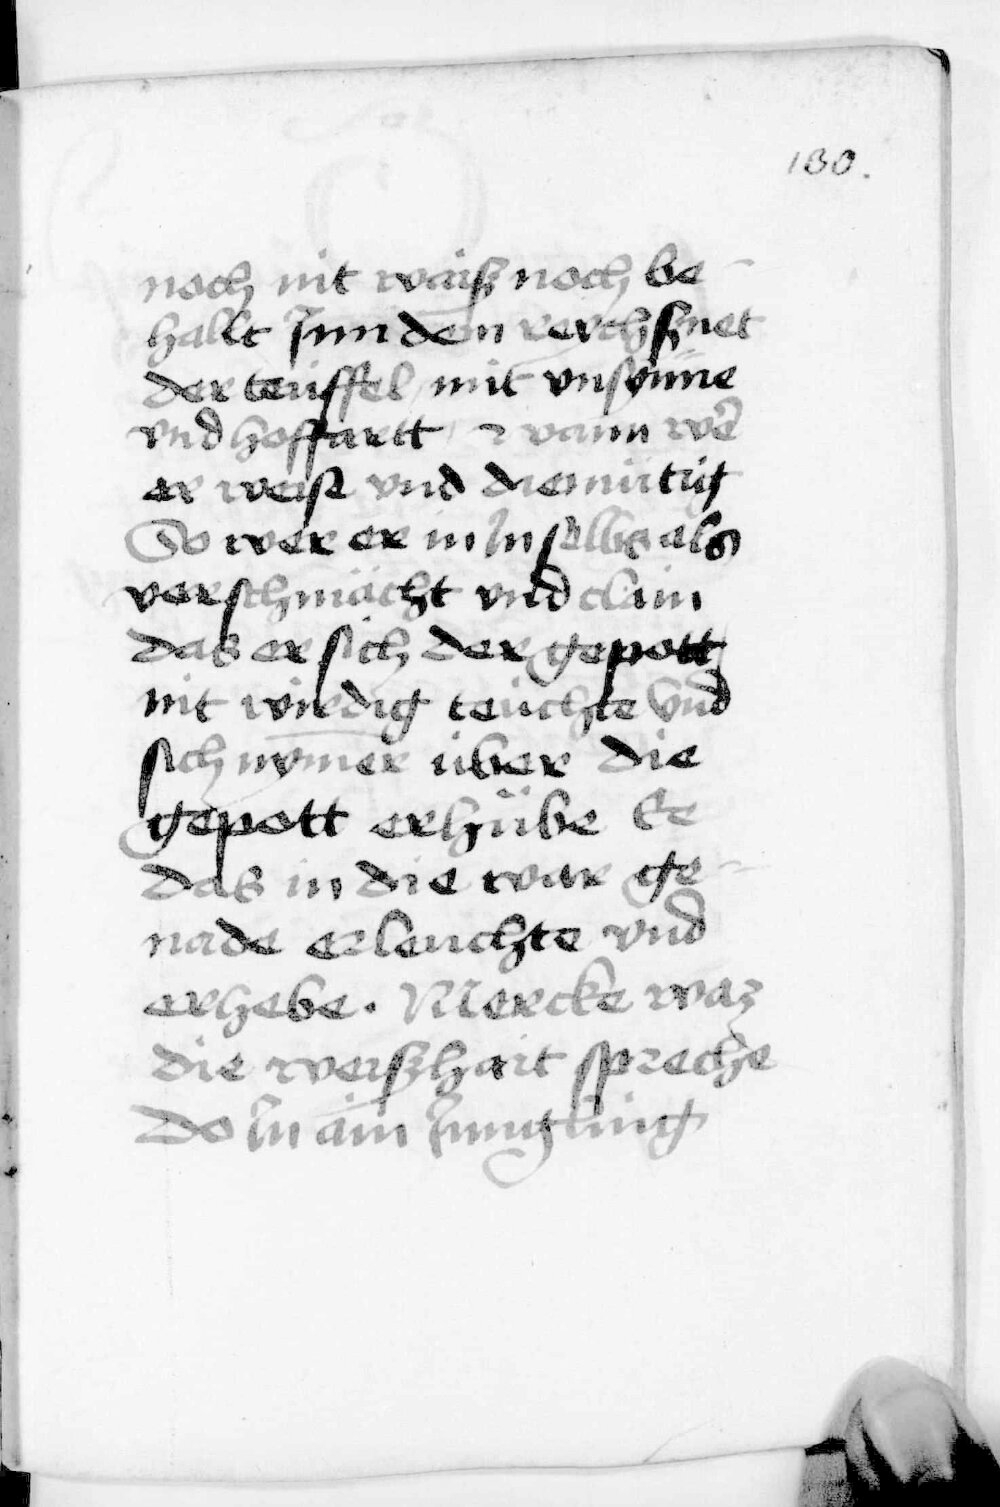 130.
noch nit waiß noch be-
hallt Inn dem reychsnet
der teuffel mit vnsynne
vnd hoffartt wann wer̄
er weise vnd diemütig
So wer er in In selbs als
verschmächt vnd clain
das er sich der gepott
nit wirdig teüchte vnd
sich nymer über die
gepott erhübe Ee
das in die war ge-
nade erleuchte vnd
erhebe. Mercke waz
die weißhait spreche
do In ain Jungling